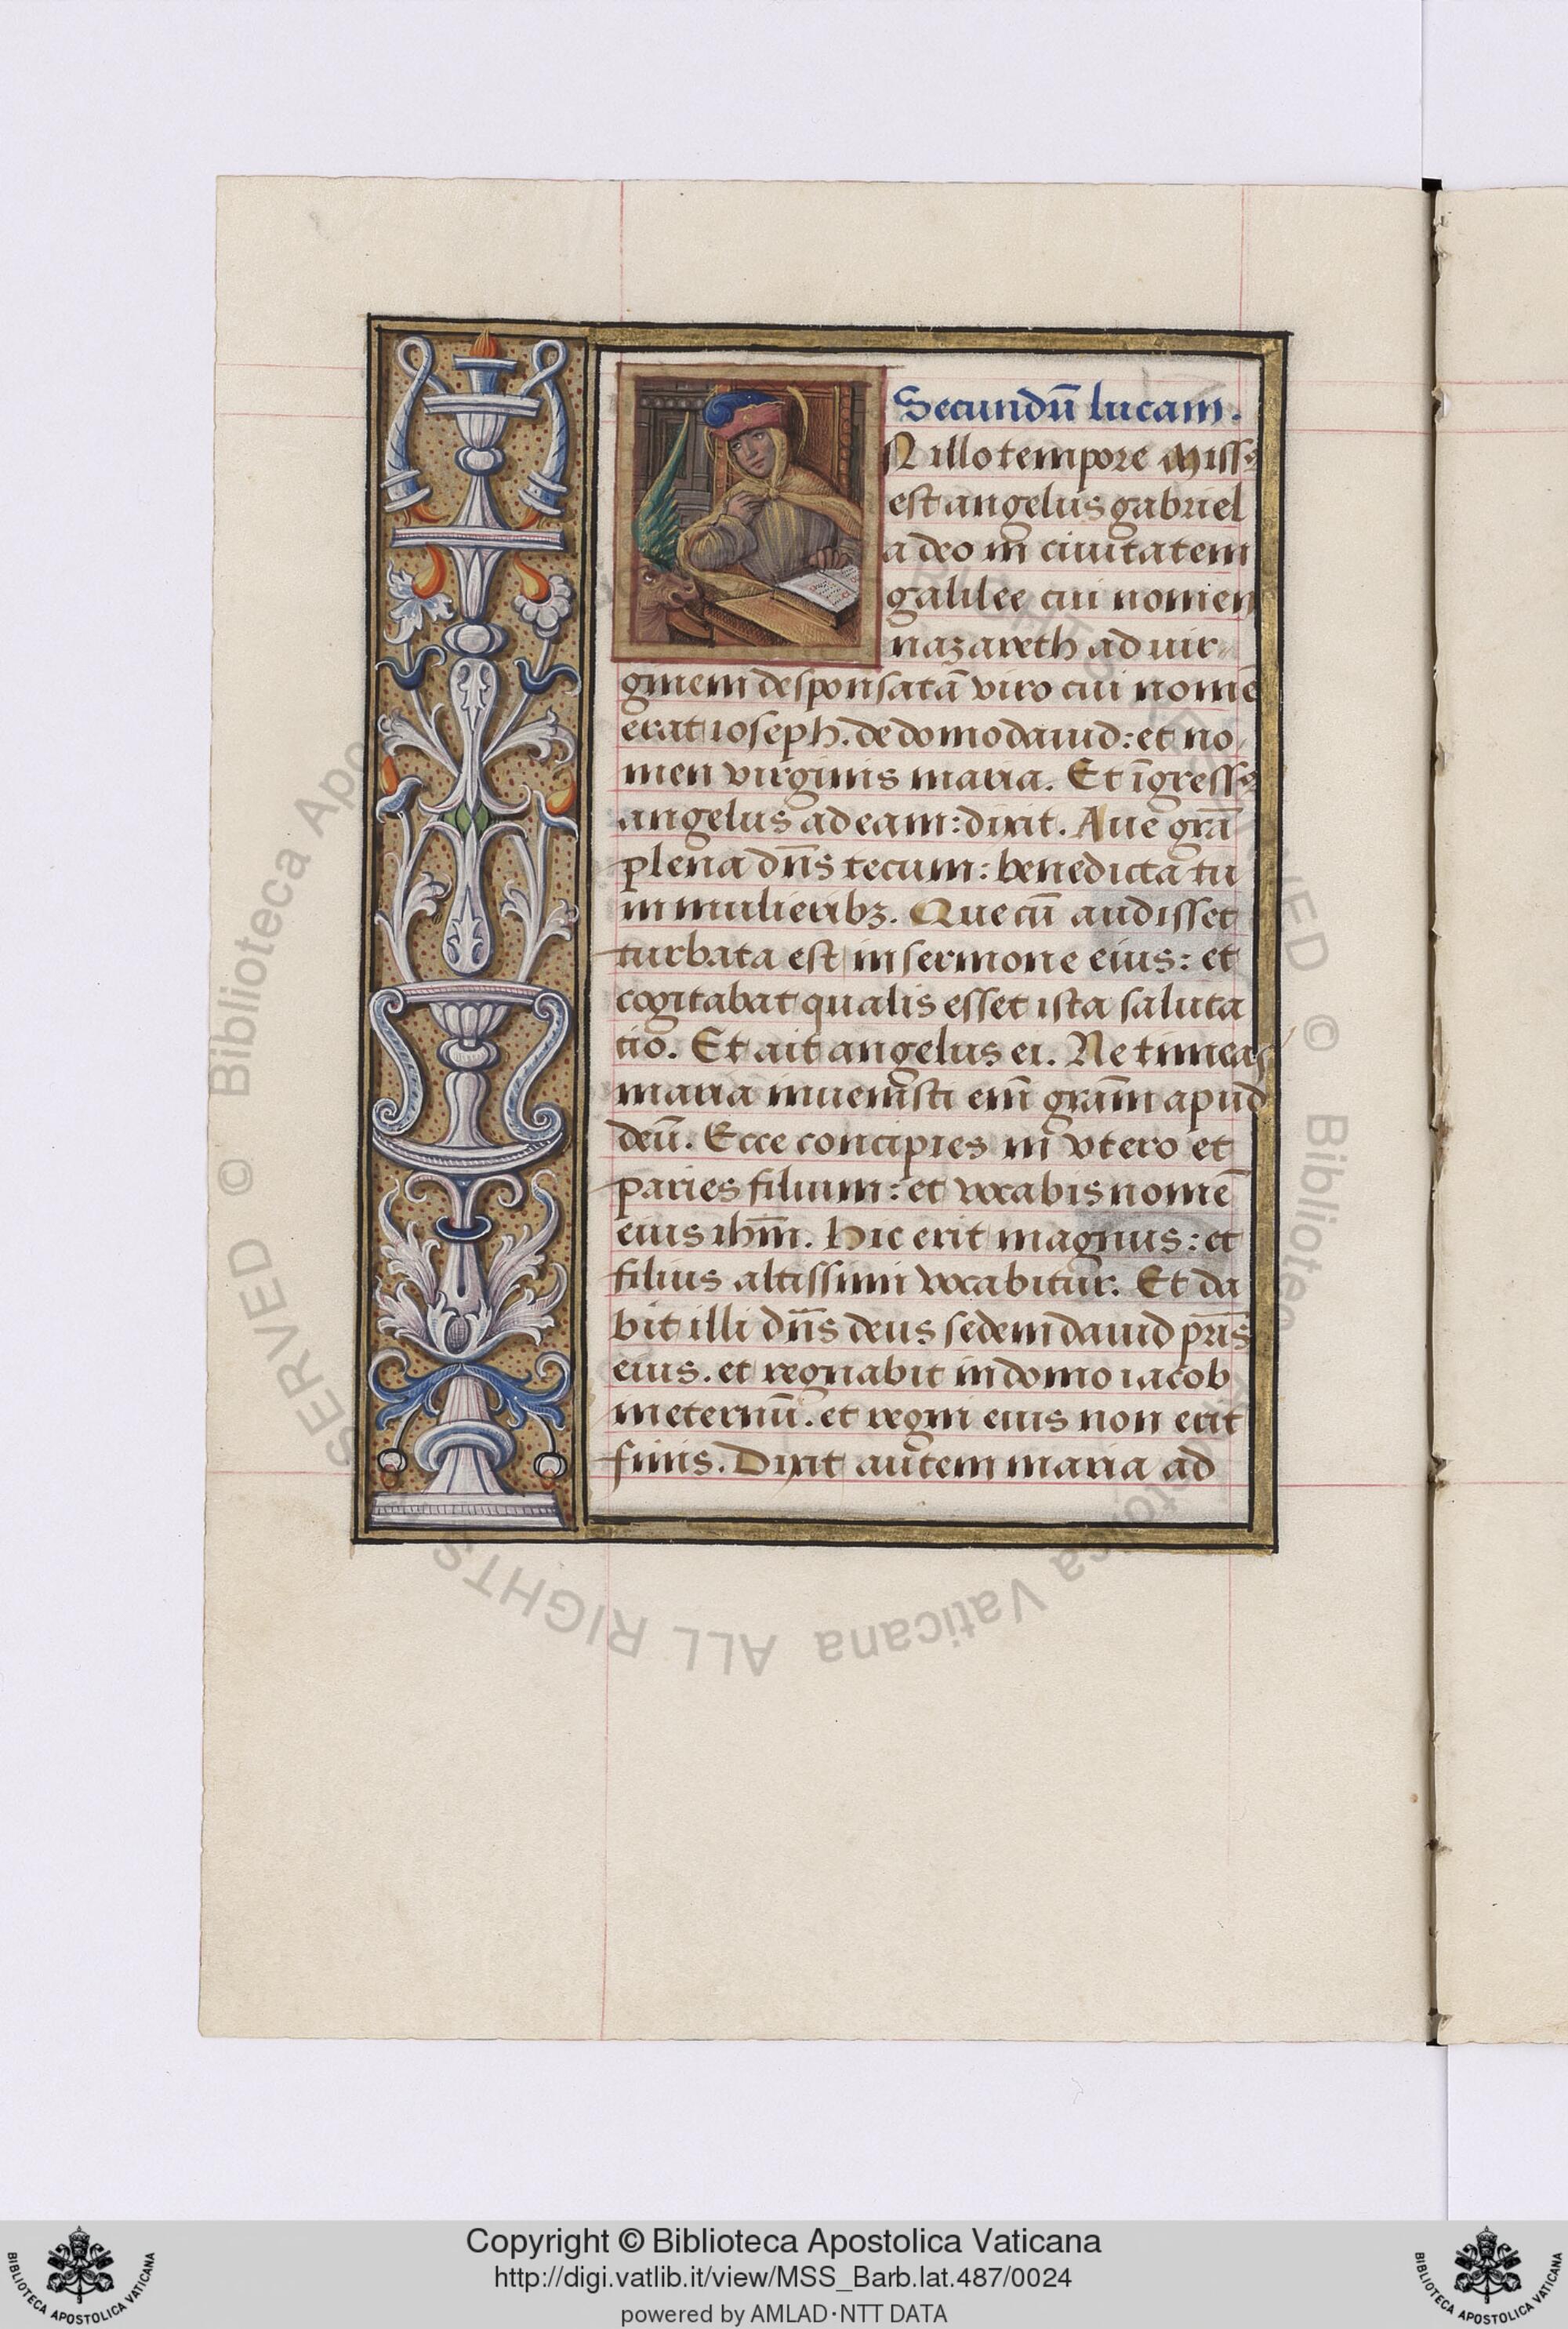 Secundū lucam.
N illo tempore missꝰ
est angelus gabriel
a deo in ciuitatem
galilee cui nomen
nazareth ad uir
ginem desponsatā viro cui nomē
erat ioseph. de domo dauid: et no
men virginis maria. Et īgressꝰ
angelus ad eam: dixit. Aue grā
plena dn̄s tecum: benedicta tu
in mulieribꝫ. Que cū audisset
turbata est in sermone eius: et
cogitabat qualis esset ista saluta
tio. Et ait angelus ei. Ne timeas
maria inuenisti em̄ grām apud
deū. Ecce concipies in vtero et
paries filium: et vocabis nomē
eius ihm̄. Hic erit magnus: et
filius altissimi vocabitur. Et da
bit illi dn̄s deus sedem dauid pr̄is
eius. et regnabit in domo iacob
in eternū. et regni eius non erit
finis. Dixit autem maria ad
© Biblioteca Apostolica Vaticana ALL RIGHTS RESERVED
Copyright © Biblioteca Apostolica Vaticana
http://digi.vatlib.it/view/MSS_Barb.lat.487/0024
powered by AMLAD·NTT DATA
BIBLIOTECA APOSTOLICA VATICANA
BIBLIOTECA APOSTOLICA VATICANA